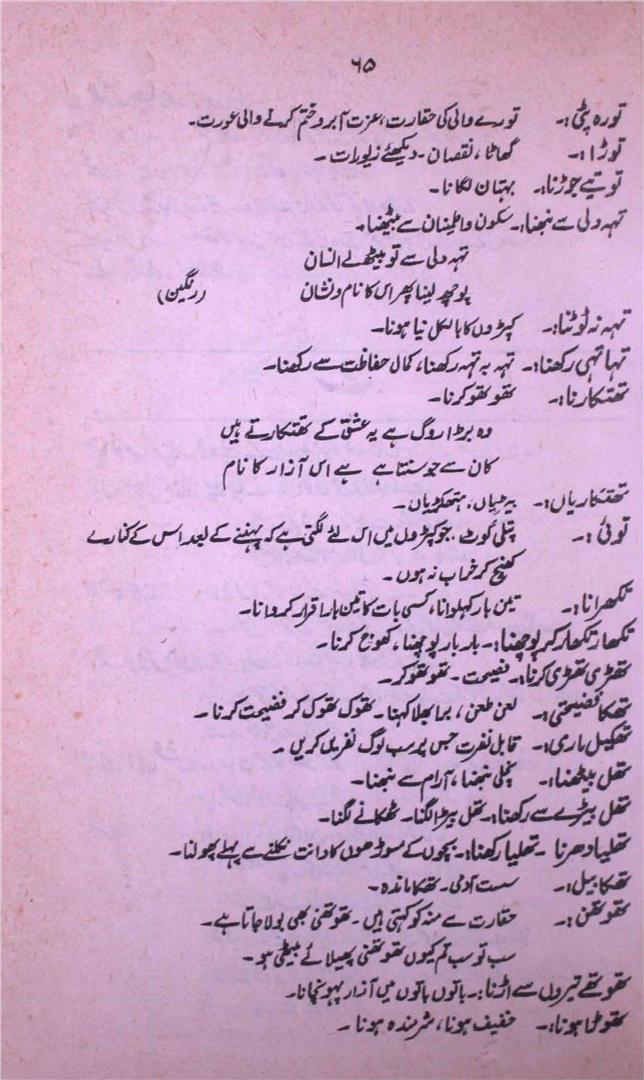 ۶۵
تورہ پٹی:۔ تورے والی کی حقارت، عزت آبرو ختم کرنے والی عورت۔
توڑا:۔ گھاٹا، نقصان۔ دیکھئے زیورات۔
توتیے جوڑنا:۔ بہتان لگانا۔
تہہ دلی سے بنجنا:۔ سکون واطینان سے بیٹھنا۔
تہہ دلی سے تو بیٹھ لے انسان
پوچھ لینا پھر اس کا نام و نشان (رنگین)
تہہ نہ لوٹنا:۔ کپڑوں کا بالکل نیا ہونا۔
تہا تہی رکھنا:۔ تہہ بہ تہہ رکھنا، کمال حفاظت سے رکھنا۔
تھتکارنا:۔ تھو تھو کرنا۔
وہ بڑا روگ ہے یہ عشق کے تھتکارتے ہیں
کان سے جو سنتا ہے ہے اس آزار کا نام
تھتکاریاں:۔ بیڑیاں، ہتھکڑیاں۔
توئی:۔ پتلی گوٹ۔ جو کپڑوں میں اس لئے لگتی ہے کہ پہننے کے بعد اس کے کنارے
کھنچ کر خراب نہ ہوں۔
تکھرانا:۔ تین بار کہلوانا، کسی بات کا تین بار اقرار کروانا۔
تکھار تکھار کر پوچھنا:۔ بار بار پوچھنا، کھوج کرنا۔
تھڑی تھڑی کرنا:۔ فضیحت۔ تھو تھو کر۔
تھکا فضیحتی:۔ لعن طعن، برا بھلا کہنا۔ تھوک تھوک کر فضیحت کرنا۔
تھکیل ماری:۔ قابل نفرت جس پر سب لوگ نفریں کریں۔
تھل بیٹھنا:۔ نچلی بنجنا، آرام سے بنجنا۔
تھل بیڑے سے رکھنا:۔ تھل بیڑا لگنا۔ ٹھکانے لگنا۔
تھلیا دھرنا۔ تھلیا رکھنا:۔ بچوں کے مسوڑھوں کا دانت نکلنے سے پہلے پھولنا۔
تھکا بیل:۔ سست آدمی۔ تھکا ماندہ۔
تھوتھن:۔ حقارت سے منہ کو کہتی ہیں۔ تھوتھنی بھی بولا جاتا ہے۔
سب تو سب تم کیوں تھوتھنی پھیلائے بیٹھی ہو۔
تھوتھے تیروں سے اڑنا:۔ باتوں باتوں میں آزار پہونچانا۔
تھوڑا ہونا:۔ خفیف ہونا، شرمندہ ہونا۔